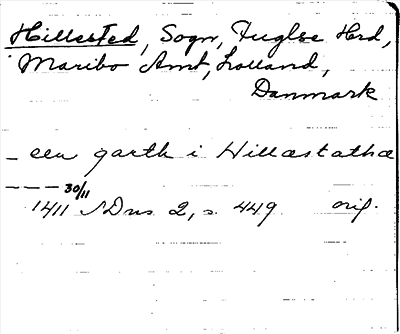 Hillested, Sogn, Fuglse Hrd,
Maribo Amt, Lolland,
Danmark
- een garth i Hillæstathæ
- - - 30/11
1411 NDns 2, s. 449 orig.